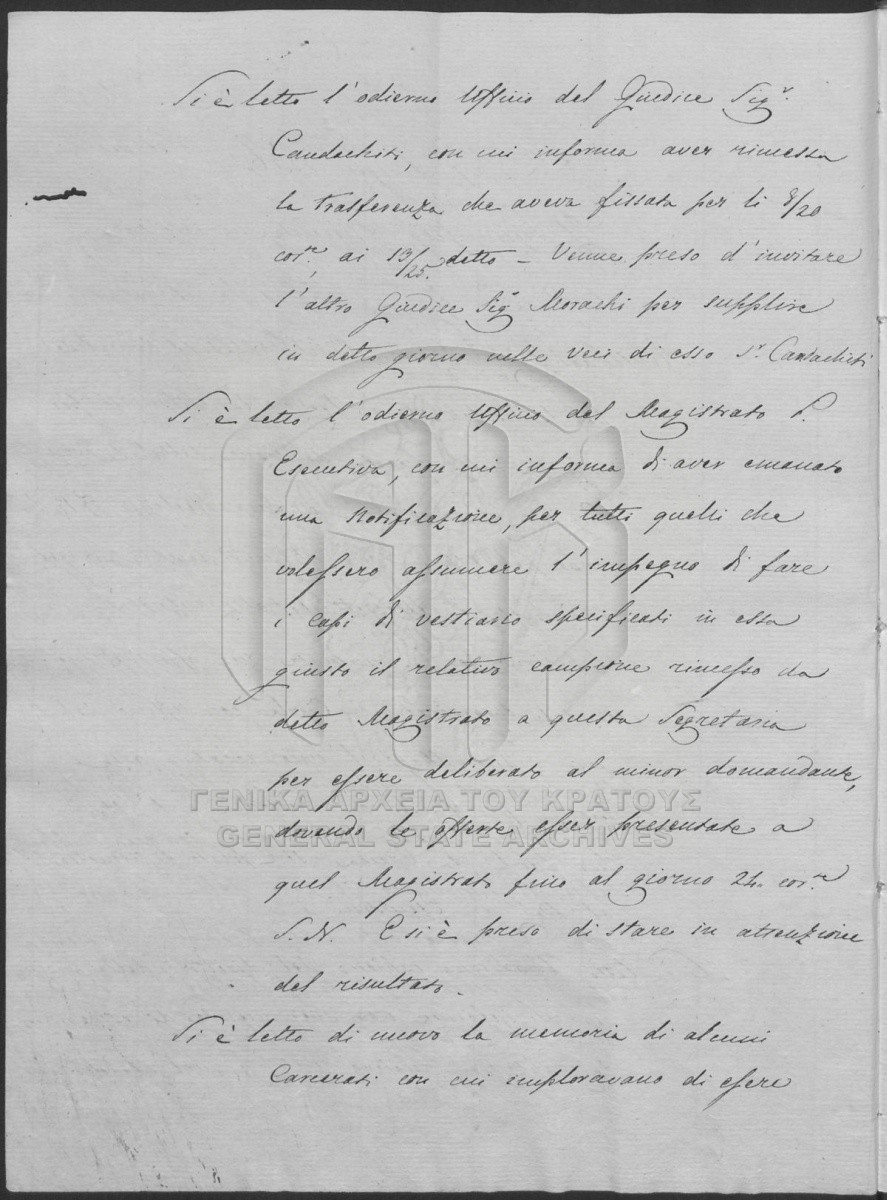 Si è letto l'odierno Uffizio del Giudice Sigr.
Candachiti, con cui informa aver rimessa
la trasferenza che aveva fissata per li 8/20
corre., ai 13/25. detto – Venne preso d'invitare
l'altro Giudice Sigr. Morachi per supplire
in detto giorno nelle veci di esso Sr. Candachiti
Si è letto l'odierno Uffizio del Magistrato P.
Esecutiva, con cui informa di aver emanato
una Notificazione, per tutti quelli che
volessero assumere l'impegno di fare
i capi di vestiario specificati in essa
giusto il relativo campione rimesso da
detto Magistrato a questa Segretaria
per essere deliberato al minor domandante,
ΓΕΝΙΚΑ ΑΡΧΕΙΑ ΤΟΥ ΚΡΑΤΟΥΣ
dovendo le offerte esser presentate a
GENERAL STATE ARCHIVES
quel Magistrato fino al giorno 24. corre.
S. N. E si è preso di stare in attenzione
del risultato.
Si è letto di nuovo la memoria di alcuni
Carcerati con cui imploravano di essere